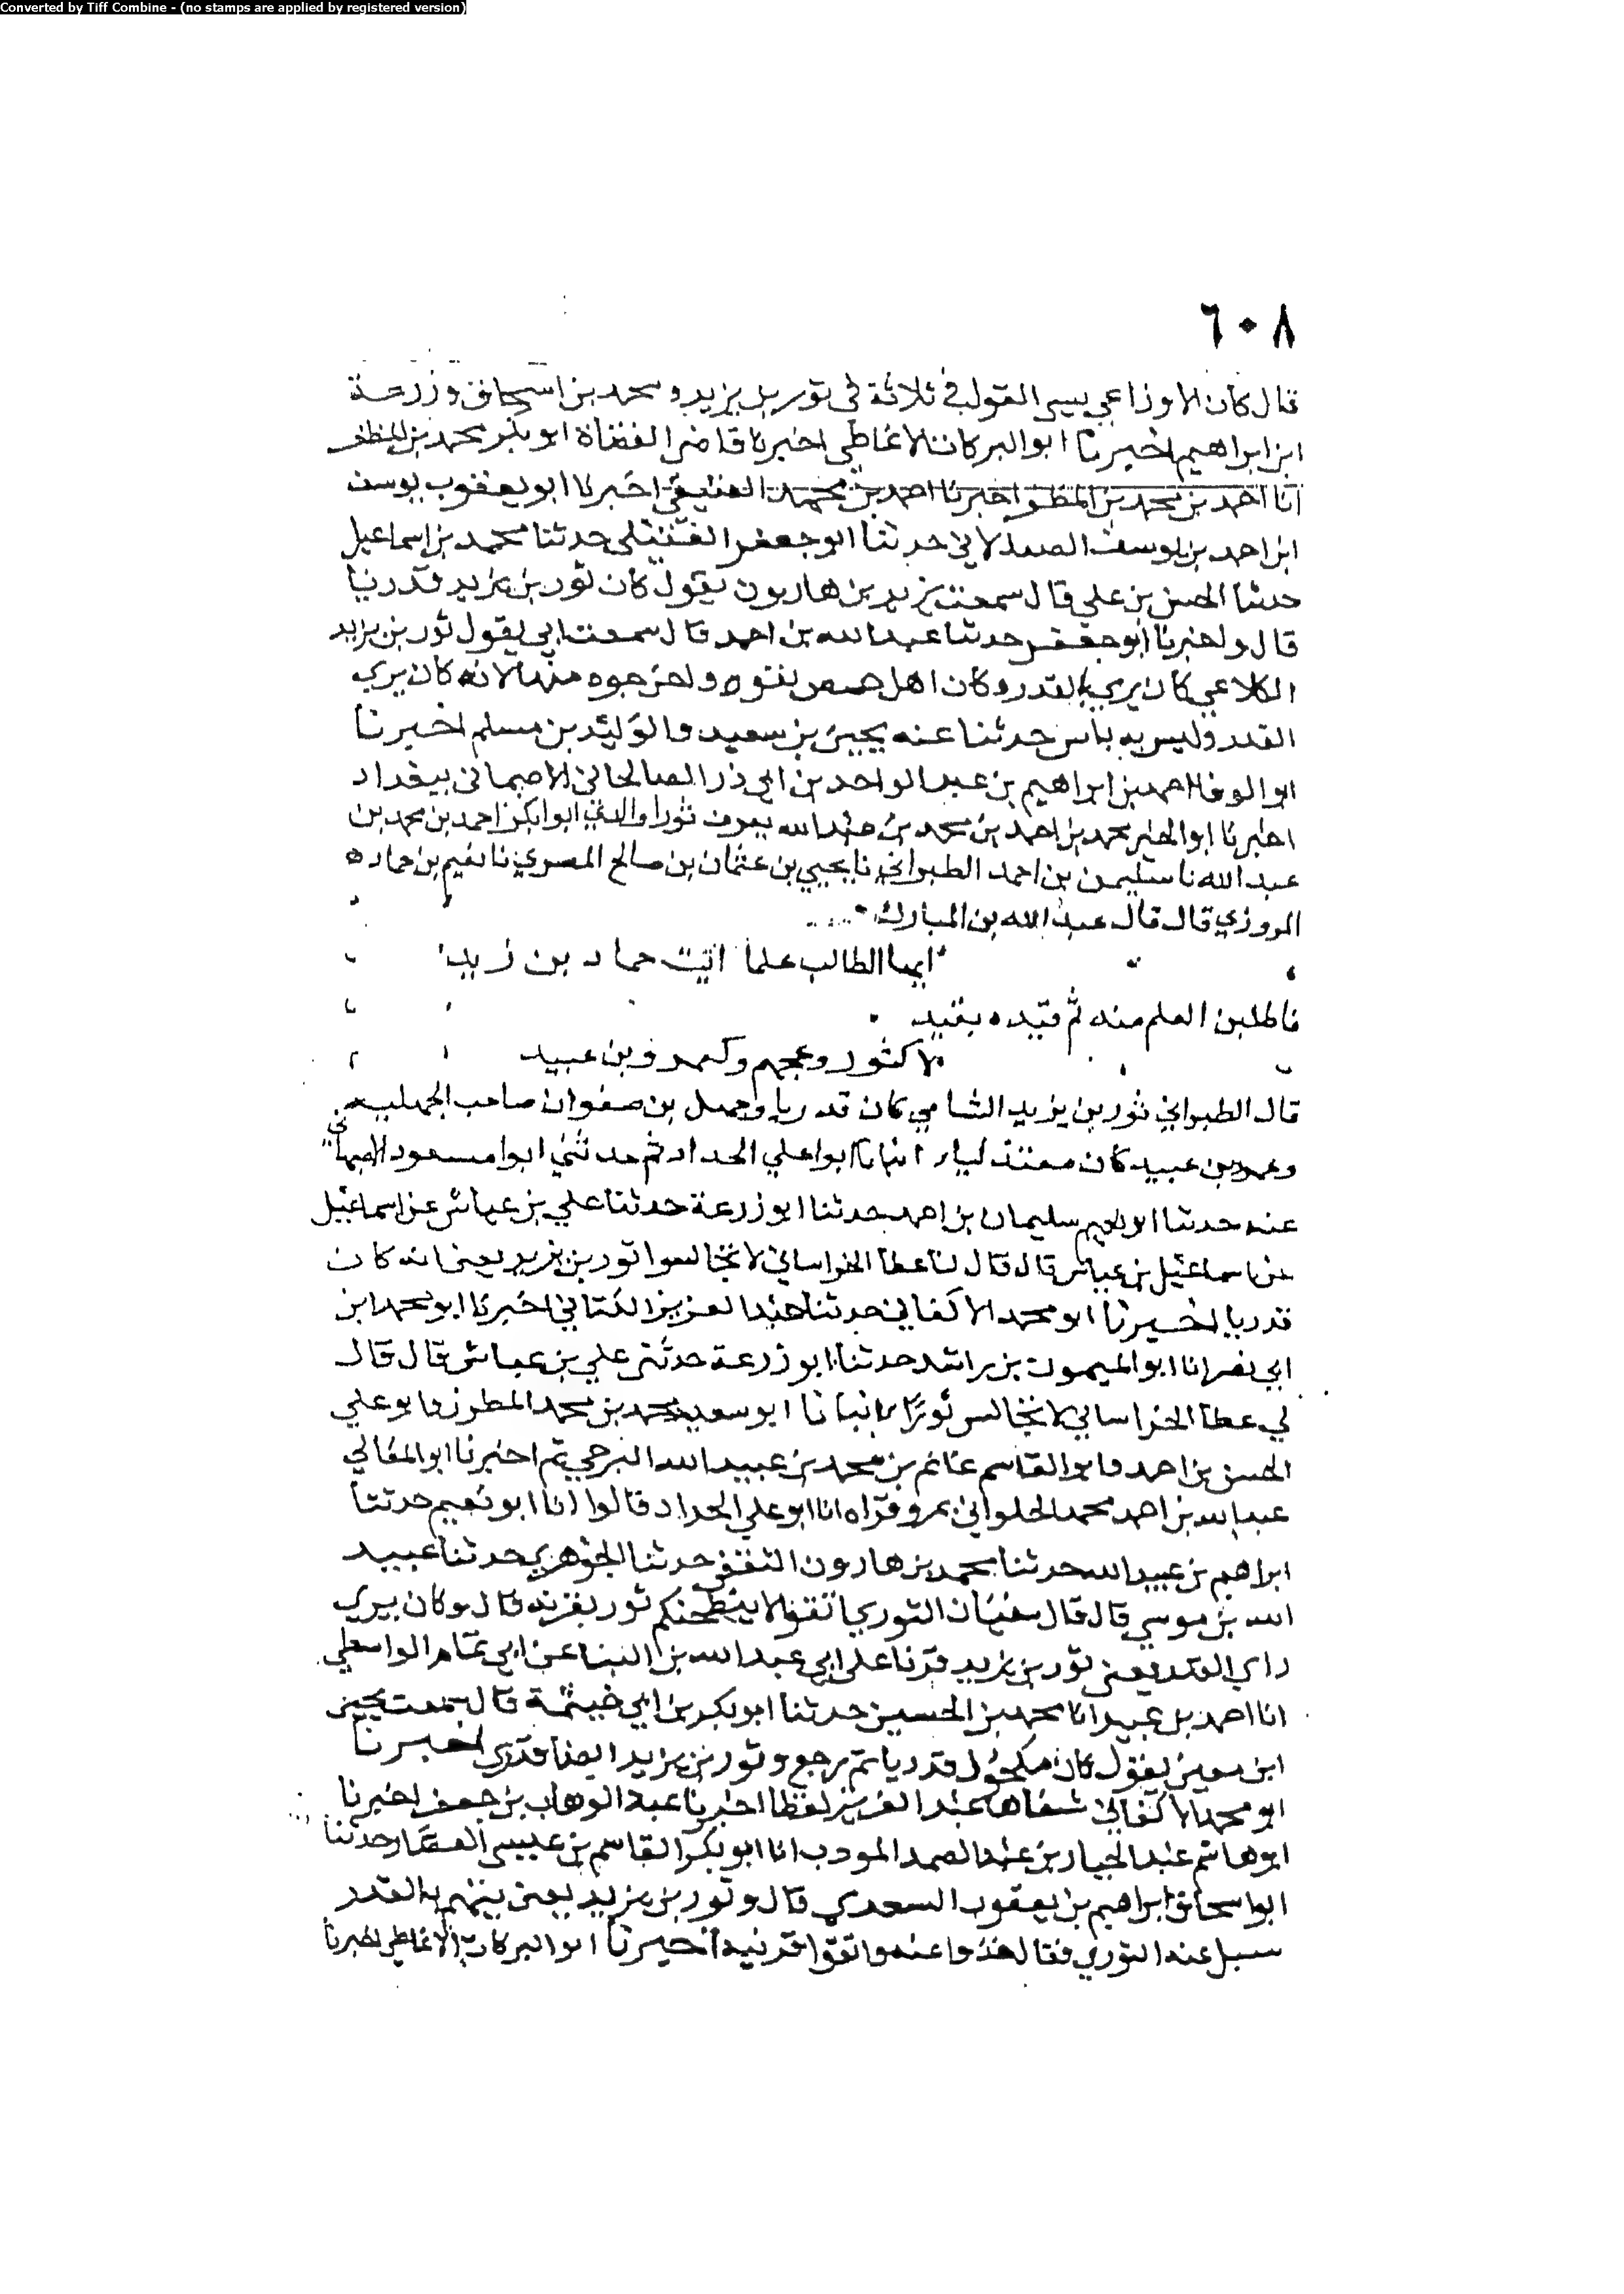 Converted by Tiff Combine - (no stamps are applied by registered version)
٦٠٨
قال كان الاوزاعي يسيى القول في ثلاثة فى ثور بن يزيد ومحمد بن اسحاق وزرعة
ابن ابراهيم اخبرنا ابو البركات الانماطي اخبرنا قاضى القضاة ابو بكر محمد بن المظفر
انا احمد بن محمد بن المظفر اخبرنا احمد بن محمد العتيقي اخبرنا ابو يعقوب يوسف
ابن احمد بن يوسف الصيدلاني حدثنا ابو جعفر العقيلي حدثنا محمد بن اسماعيل
حدثنا الحسن بن علي قال سمعت يزيد بن هارون يقول كان ثور بن يزيد قدريا
قال واخبرنا ابو جعفر حدثنا عبد الله بن احمد قال سمعت ابي يقول ثور بن يزيد
الكلاعي كان يري القدر وكان اهل حمص نفوه واخرجوه منها لانه كان يري
القدر وليس به باس حدثنا عنه يحيى بن سعيد والوليد بن مسلم اخبرنا
ابو الوفا احمد بن ابراهيم بن عبد الواحد بن ابي ذر الصالحاني الاصبهاني ببغداد
اخبرنا ابو الخير محمد بن احمد بن محمد بن عبد الله يعرف ابو بكر احمد بن محمد بن
عبد الله نا سليمن بن احمد الطبراني نا يحيي بن عثمان بن صالح المصري نا نعيم بن حماد
المروزي قال قال عبد الله بن المبارك
ايها الطالب علما ائت حماد بن زيد
فاطلبن العلم منه ثم قيده بقيد
لا كثور وكجهم وكعمرو بن عبيد
قال الطبراني ثور بن يزيد الشامي كان قدريا وجهل بن صفوان صاحب الجهليه
وعمرو بن عبيد كان معتذليا انبانا ابو علي الحداد ثم حدثني ابو مسعود الاصبهاني
عنه حدثنا ابو نعيم سليمان بن احمد حدثنا ابو زرعة حدثنا علي بن عياش عن اسماعيل
عن اسماعيل بن عياش قال قال لنا عطا الخراساني لا تجالسوا ثور بن يزيد يعني انه كان
قدريا اخبرنا ابو محمد الاكفاني حدثنا عبد العزيز الكتاني اخبرنا ابو محمد ابن
ابي نصر انا ابو الميمون بن راشد حدثنا ابو زرعة حدثني علي بن عياش قال قال
لي عطا الخراساني لا تجالس ثورا انبانا ابو سعيد محمد بن محمد المطرز وابو علي
الحسن بن احمد وابو القاسم غانم بن محمد بن عبيد الله البرجي ثم اخبرنا ابو المعالي
عبد الله بن احمد محمد الحلواني بمرو قراه انا ابو علي الحداد قالوا انا ابو نعيم حدثنا
ابراهيم بن عبيد الله حدثنا محمد بن هارون الثقفي حدثنا الجوهري حدثنا عبيد
الله بن موسي قال قال سفيان الثوري اتقوا لا ينطحنكم ثور بقرنه قال وكان يري
راي القدر يعني ثور بن يزيد قرنا على ابي عبد الله بن البنا عن ابي تمام الواسطي
انا احمد بن عبيد انا محمد بن الحسين حدثنا ابو بكر بن ابي خيثمة قال سمعت يحيى
ابن معين يقول كان مكحول قدريا ثم رجع وثور بن يزيد ايضا قدري اخبرنا
ابو محمد الاكفاني شفاها عبد العزيز لفظا اخبرنا عبد الوهاب بن جعفر اخبرنا
ابو هاشم عبد الجبار بن عبد الصمد المودب انا ابو بكر القاسم بن عيسى العصار حدثنا
ابو اسحاق ابراهيم بن يعقوب السعدي قال وثور بن يزيد يعني يتهم بالقدر
سيل عنه الثوري فقال خذوا عنه واتقوا قرنيه اخبرنا ابو البركات الانماطي اخبرنا